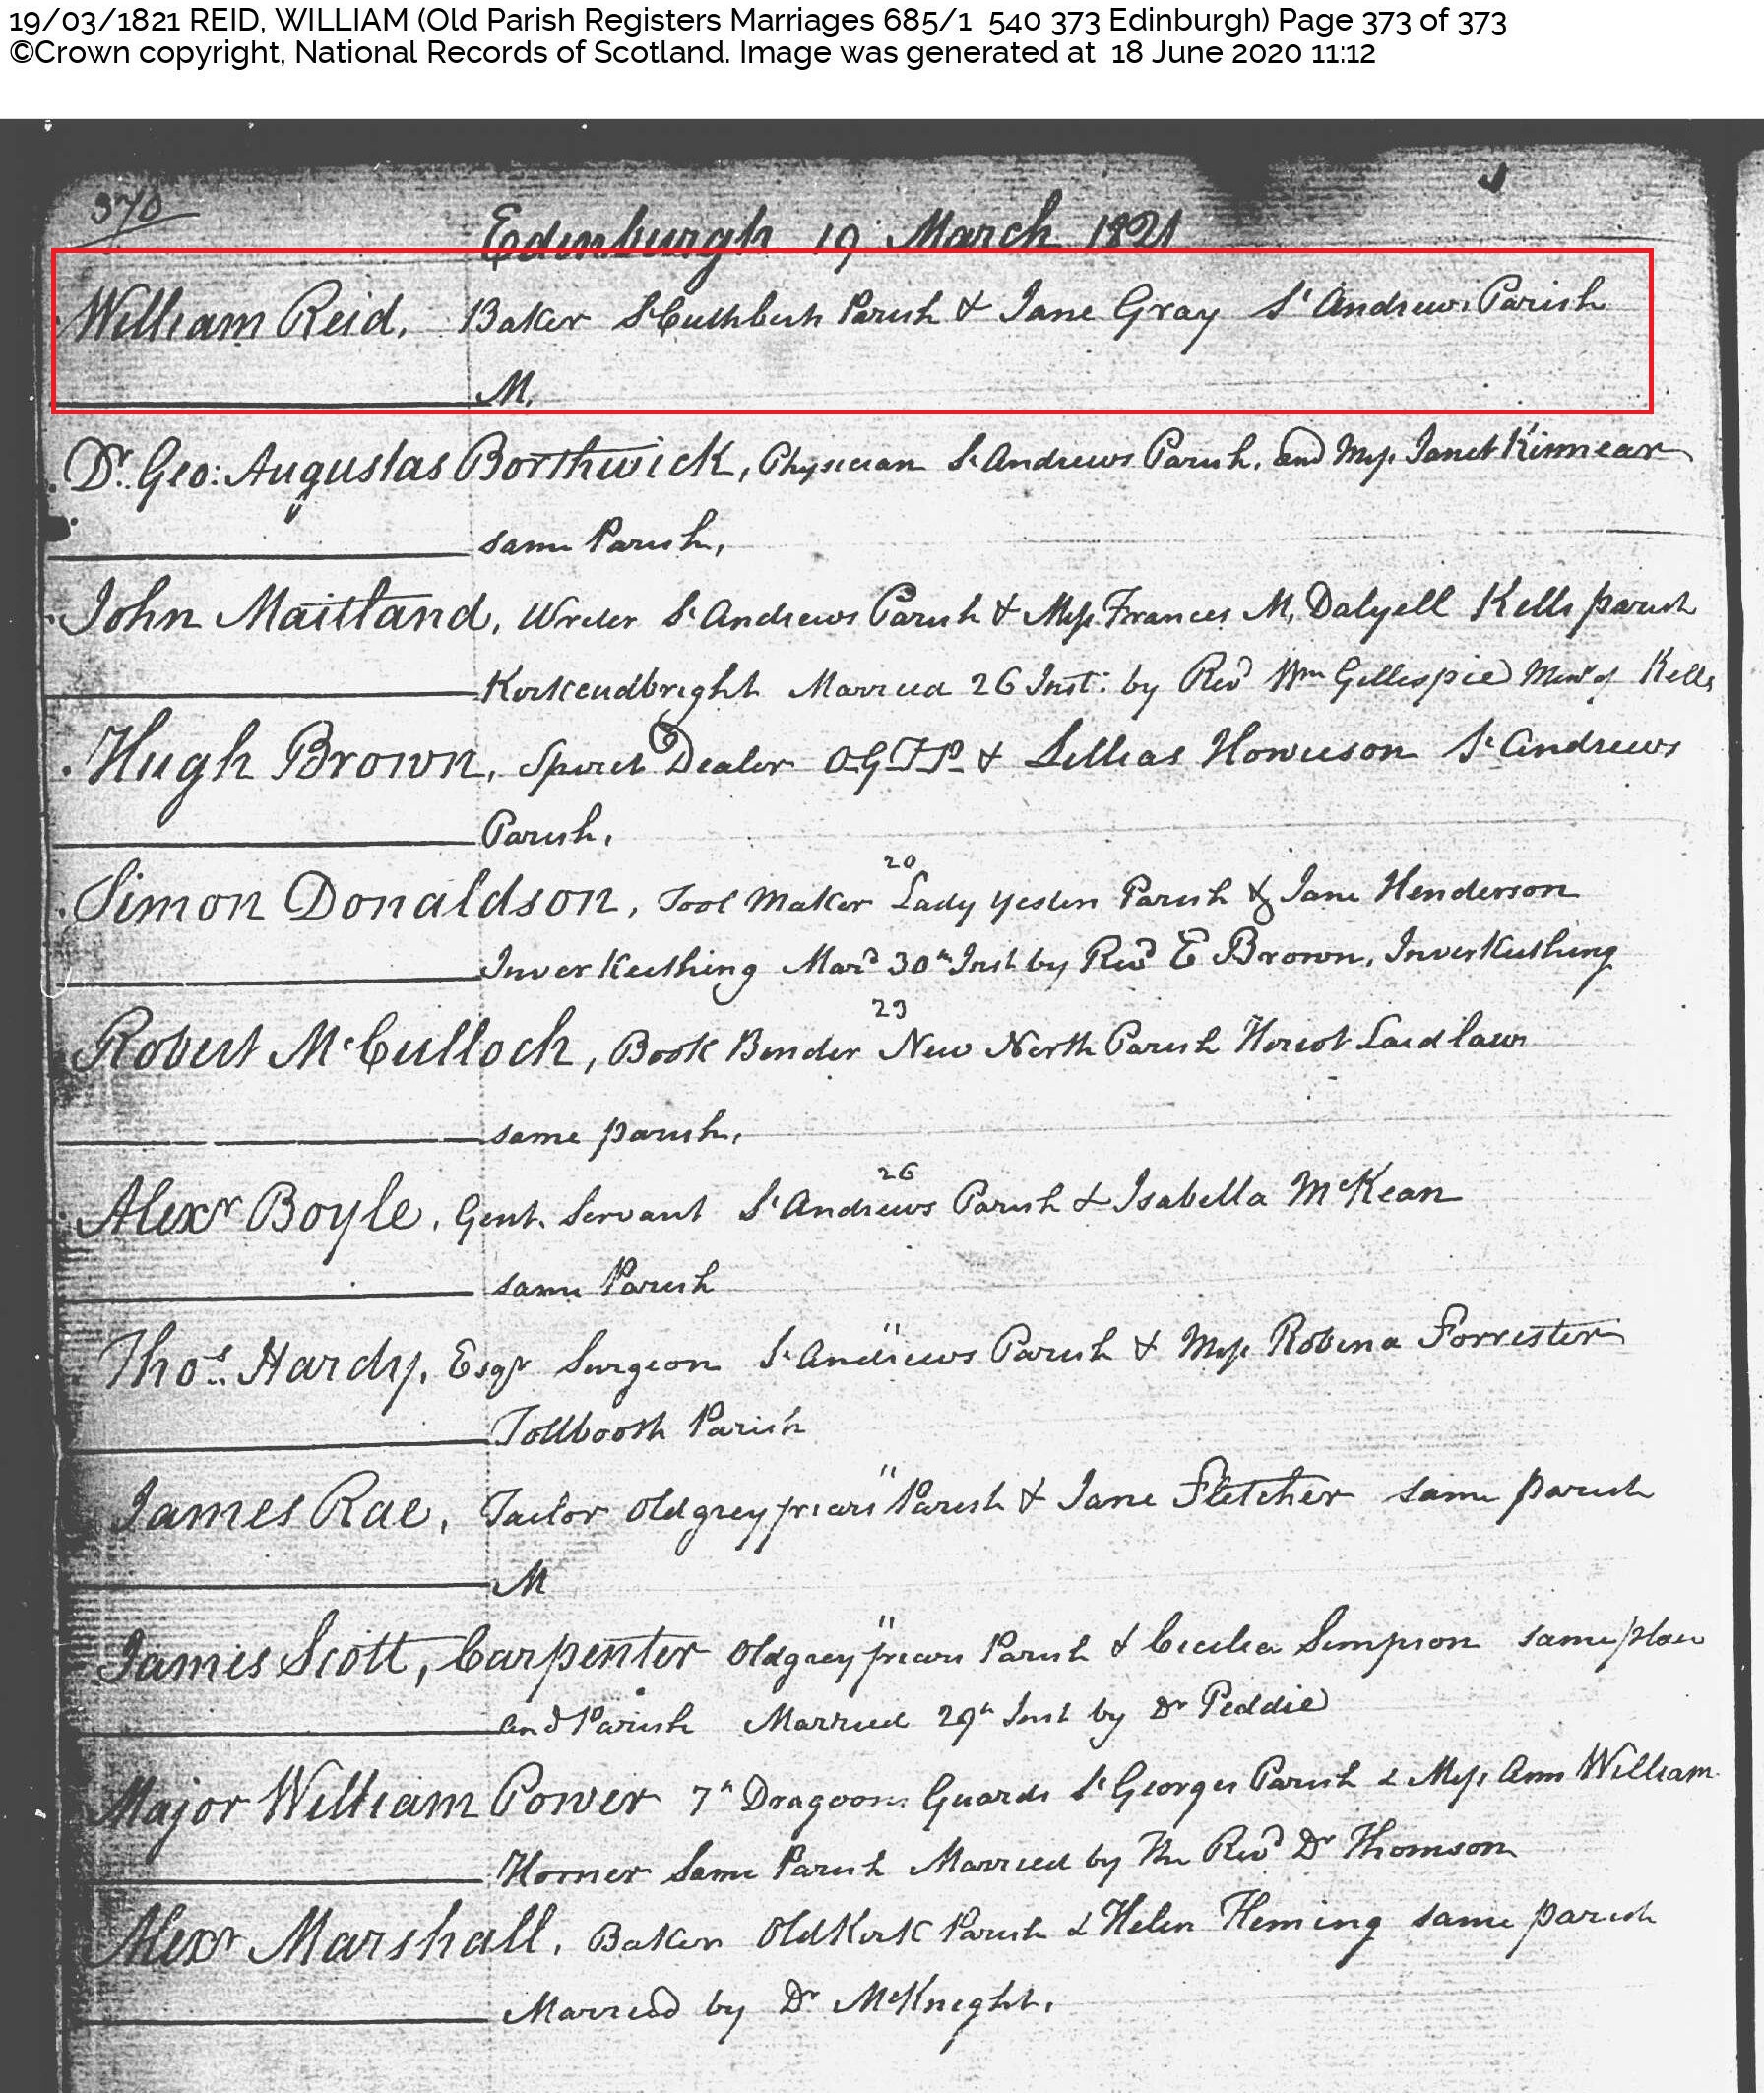 19/03/1821 REID, WILLIAM (Old Parish Registers Marriages 685/1 540 373 Edinburgh) Page 373 of 373
©Crown copyright, National Records of Scotland. Image was generated at 18 June 2020 11:12
370
Edinburgh 19 March 1821
William Reid, Baker St Cuthberts Parish & Jane Gray St Andrews Parish
M.
Dr. Geo: Augustas Borthwick, Physician St Andrews Parish, and Miss Janet Kinnear
same Parish,
John Maitland, Writer St Andrews Parish & Miss Frances M. Dalyell Kells parish
Kirkcudbright Married 26 Inst: by Revd Wm Gillespie Minr of Kells
Hugh Brown, Spirit Dealer OGFP & Lillias Howieson St Andrews
Parish,
20
Simon Donaldson, Tool Maker Lady Yesters Parish & Jane Henderson
Inverkeithing Mard 30th Inst by Revd E Brown, Inverkeithing
23
Robert McCulloch, Book Binder New North Parish Heriot Laidlaw
same parish,
26
Alexr Boyle, Gent. Servant St Andrews Parish & Isabella McKean
same Parish
"
Thos. Hardy, Esqr Surgeon St Andrews Parish & Miss Robina Forrester
Tollbooth Parish
"
James Rae, Tailor Old greyfriars Parish & Jane Fletcher same parish
M
"
James Scott, Carpenter Old greyfriars Parish & Cecilia Simpson same place
and Parish Married 29th Inst by Dr Peddie
Major William Power 7th Dragoon Guards St Georges Parish & Miss Ann William
Horner Same Parish Married by The Revd Dr Thomson
Alexr Marshall, Baker Old Kirk Parish & Helen Fleming same parish
Married by Dr McKnight,